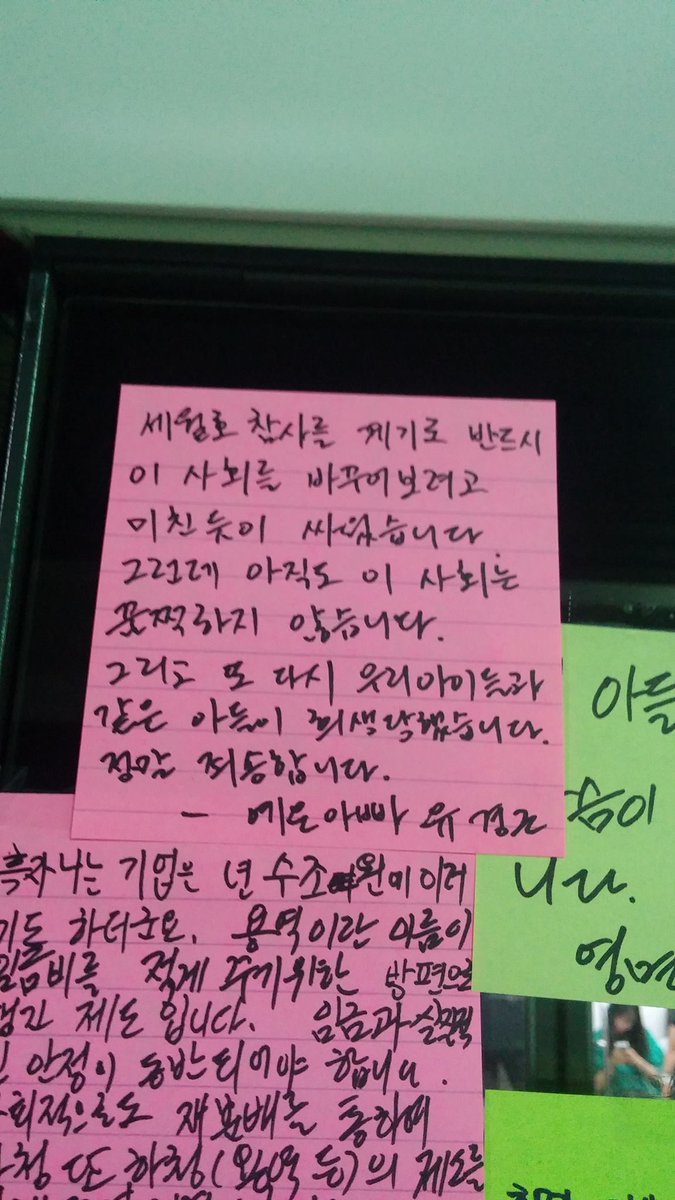 세월호 참사를 계기로 반드시
이 사회를 바꾸어보려고
미친듯이 싸웠습니다
그런데 아직도 이 사회는
꿈쩍하지 않습니다.
그리고 또 다시 우리아이들과
같은 아들이 희생당했습니다.
정말 죄송합니다.
- 예은아빠 유경근
나는 기업은 년 수조 원이 이러
하더군요. 용역이란 이름이
적게 주기위한 방편으로
제도 입니다. 임금과
안정이 동반되어야 합니다.
재분배를 통하여
또 하청(용역 등)의 제도를
아들
니다.